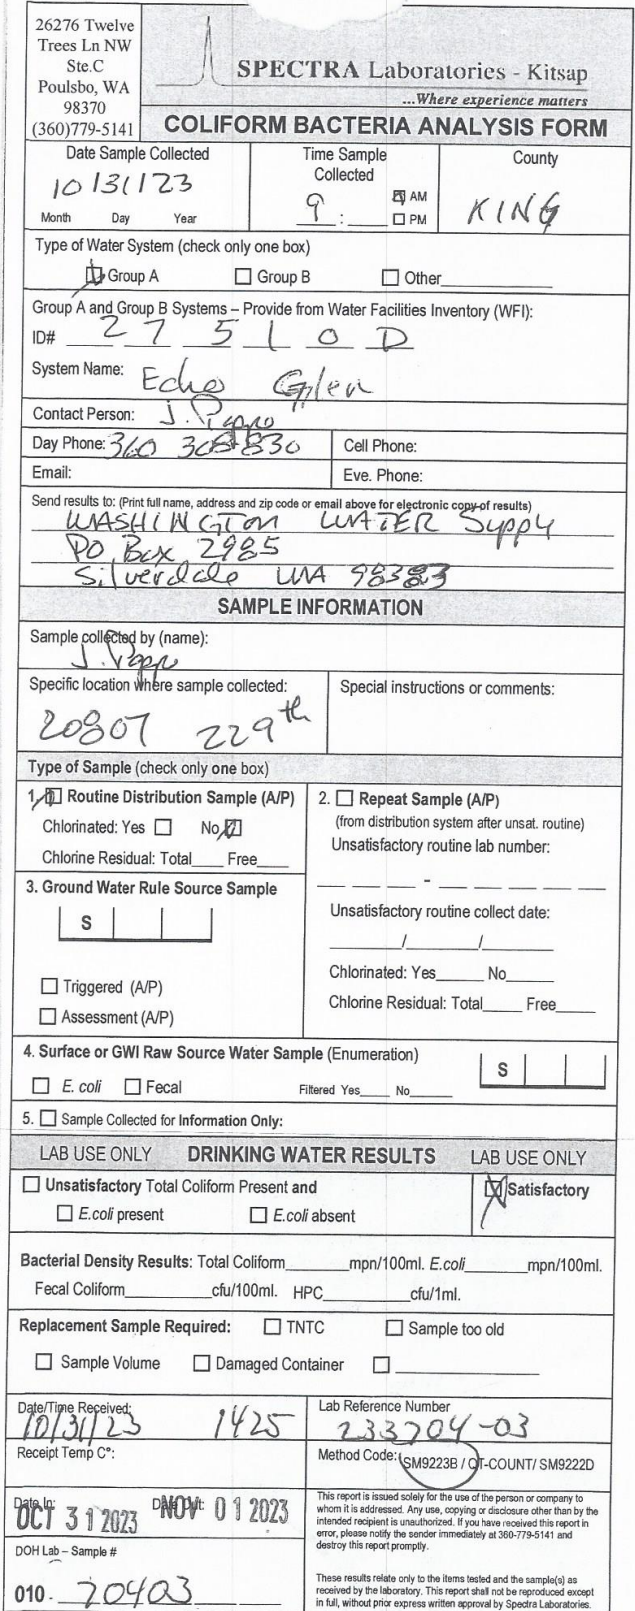 26276 Twelve
Trees Ln NW
Ste.C
Poulsbo, WA
98370
(360)779-5141
SPECTRA Laboratories - Kitsap
...Where experience matters
COLIFORM BACTERIA ANALYSIS FORM
Date Sample Collected
10/31/23
Month Day Year
Time Sample
Collected
9 : AM
PM
County
KING
Type of Water System (check only one box)
Group A Group B Other
Group A and Group B Systems – Provide from Water Facilities Inventory (WFI):
ID# 2 7 5 1 0 D
System Name: Echo Glen
Contact Person: J.
Day Phone: 360 Cell Phone:
Email: Eve. Phone:
Send results to: (Print full name, address and zip code or email above for electronic copy of results)
WASHINGTON WATER Supply
PO Box 2985
Silverdale WA 98383
SAMPLE INFORMATION
Sample collected by (name):
J.
Specific location where sample collected:
20807 229th
Special instructions or comments:
Type of Sample (check only one box)
1. Routine Distribution Sample (A/P)
Chlorinated: Yes No
Chlorine Residual: Total____ Free____
2. Repeat Sample (A/P)
(from distribution system after unsat. routine)
Unsatisfactory routine lab number:
Unsatisfactory routine collect date:
Chlorinated: Yes_____ No_____
Chlorine Residual: Total____ Free____
3. Ground Water Rule Source Sample
S
Triggered (A/P)
Assessment (A/P)
4. Surface or GWI Raw Source Water Sample (Enumeration)
S
E. coli Fecal Filtered Yes____ No____
5. Sample Collected for Information Only:
LAB USE ONLY DRINKING WATER RESULTS LAB USE ONLY
Unsatisfactory Total Coliform Present and
E.coli present E.coli absent
Satisfactory
Bacterial Density Results: Total Coliform________mpn/100ml. E.coli________mpn/100ml.
Fecal Coliform________cfu/100ml. HPC________cfu/1ml.
Replacement Sample Required: TNTC Sample too old
Sample Volume Damaged Container
Date/Time Received:
10/31/23 1425
Lab Reference Number
233704-03
Receipt Temp C°:
Method Code: SM9223B / QT-COUNT/ SM9222D
Date In: Date Out:
OCT 31 2023 NOV 01 2023
DOH Lab – Sample #
010 - 70403
This report is issued solely for the use of the person or company to
whom it is addressed. Any use, copying or disclosure other than by the
intended recipient is unauthorized. If you have received this report in
error, please notify the sender immediately at 360-779-5141 and
destroy this report promptly.
These results relate only to the items tested and the sample(s) as
received by the laboratory. This report shall not be reproduced except
in full, without prior express written approval by Spectra Laboratories.